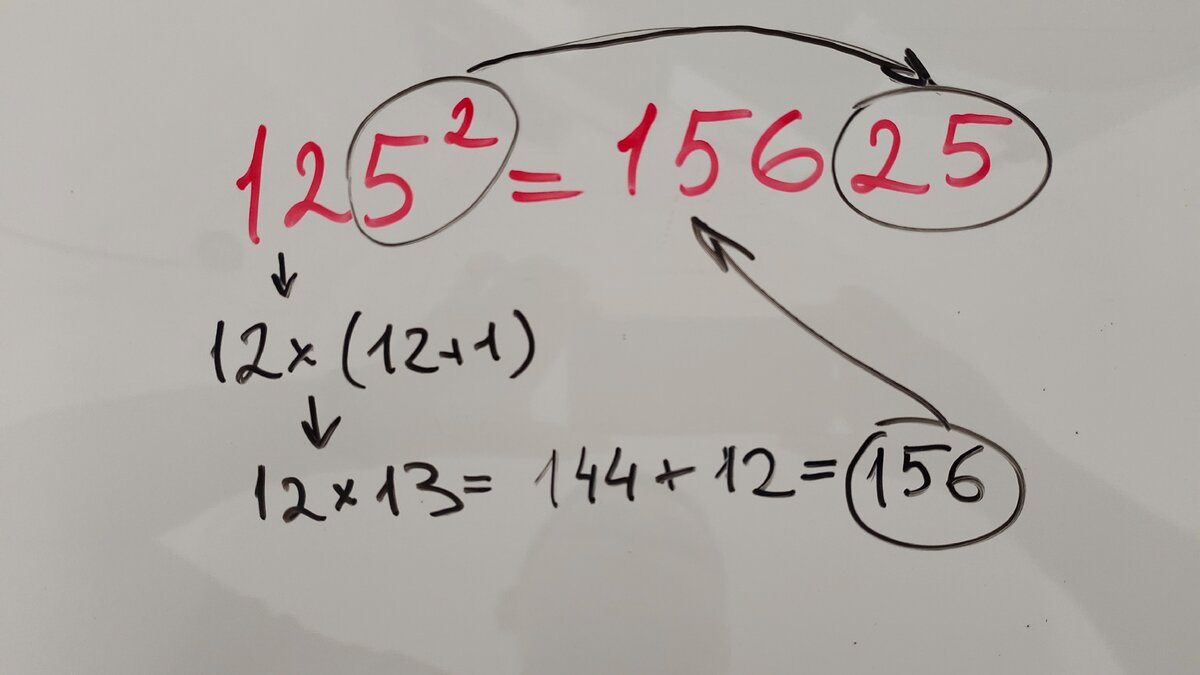 125² = 15625
12×(12+1)
12×13= 144+12=156